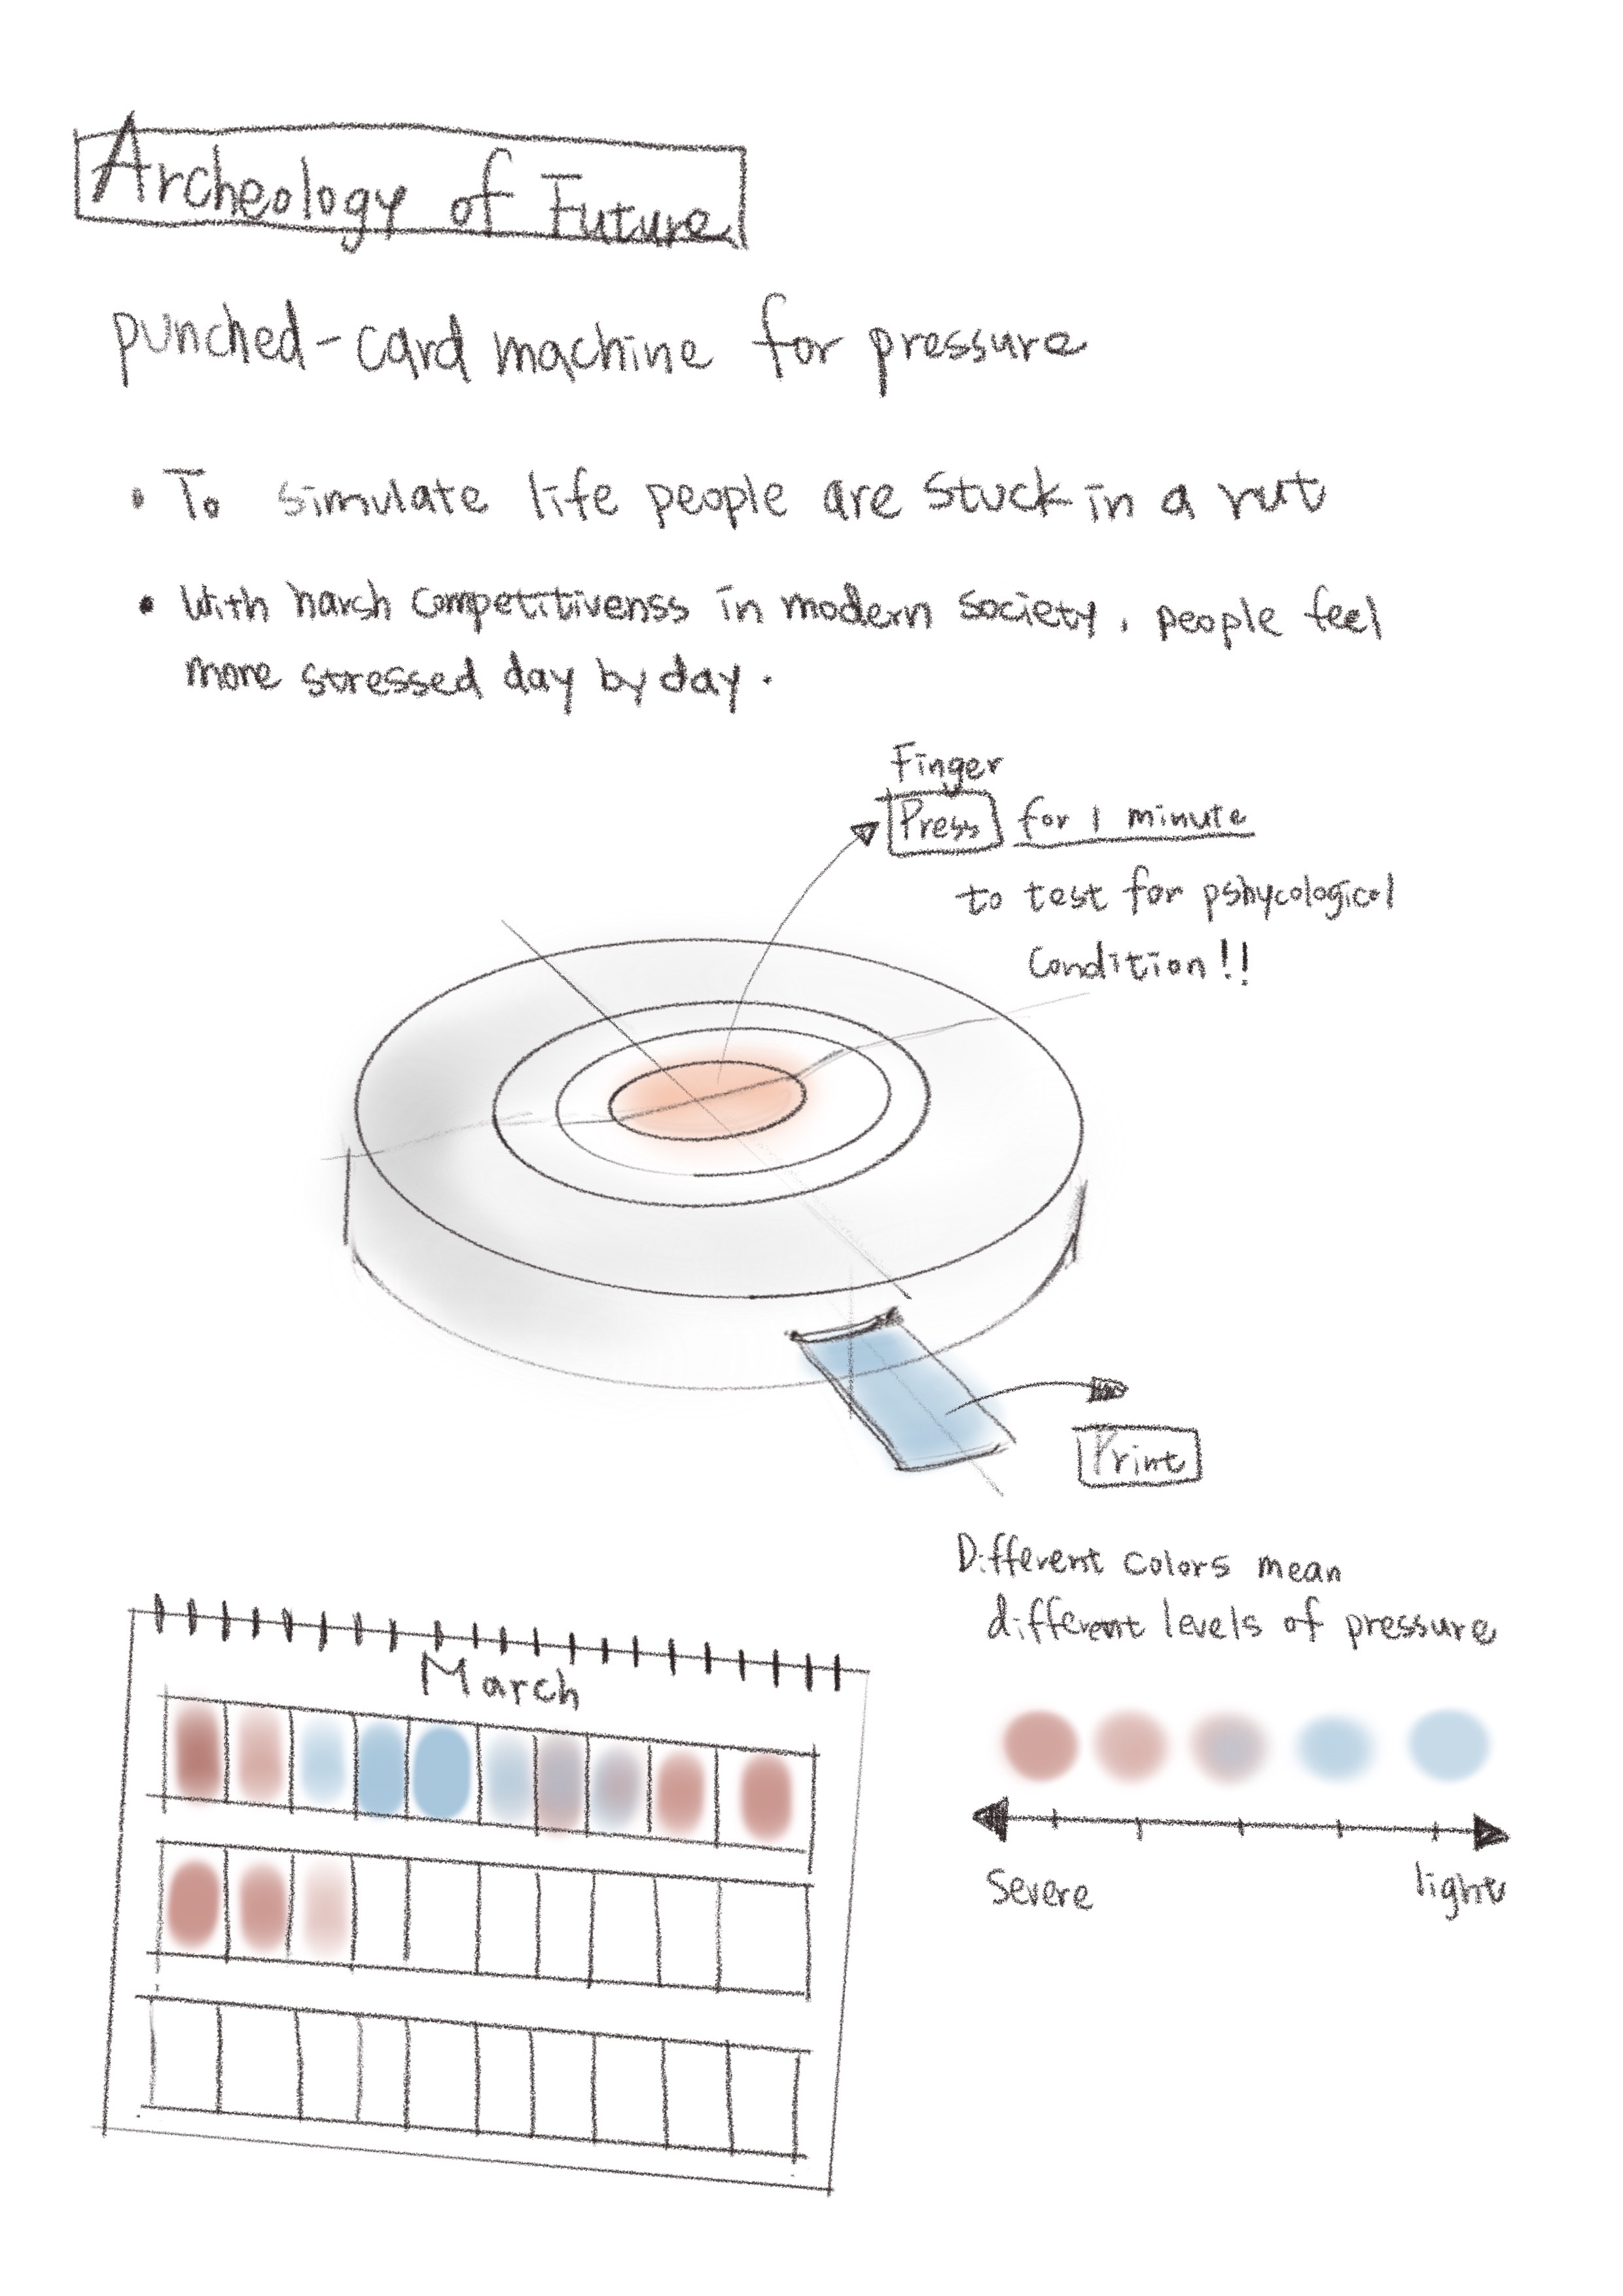 Archeology of Future
punched-card machine for pressure
• To simulate life people are stuck in a rut
• With harsh competitivenss in modern society, people feel
more stressed day by day.
Finger
Press for 1 minute
to test for pshycological
condition!!
Print
Different colors mean
different levels of pressure
Severe
light
March